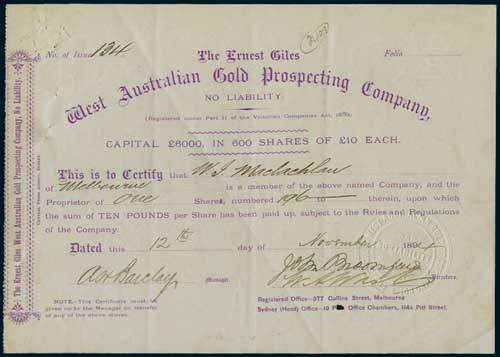 No. of Issue 134
2408
Folio
The Ernest Giles
West Australian Gold Prospecting Company,
NO LIABILITY.
(Registered under Part II of the Victorian Companies Act, 1890).
CAPITAL £6000, IN 600 SHARES OF £10 EACH.
This is to Certify that W J Maclachlan
of Melbourne is a member of the above named Company, and
Proprietor of One Share, numbered 196 to — therein, upon which
the sum of TEN POUNDS per Share has been paid up, subject to the Rules and Regulations
of the Company.
Dated this 12th day of November 1894
A H Barclay Manager.
Directors.
NOTE.—This Certificate must be
given up to the Manager on transfer
of any of the above shares.
Registered Office—377 Collins Street, Melbourne
Sydney (Head) Office—19 Post Office Chambers, 114a Pitt Street.
The Ernest Giles West Australian Gold Prospecting Company, No Liability.